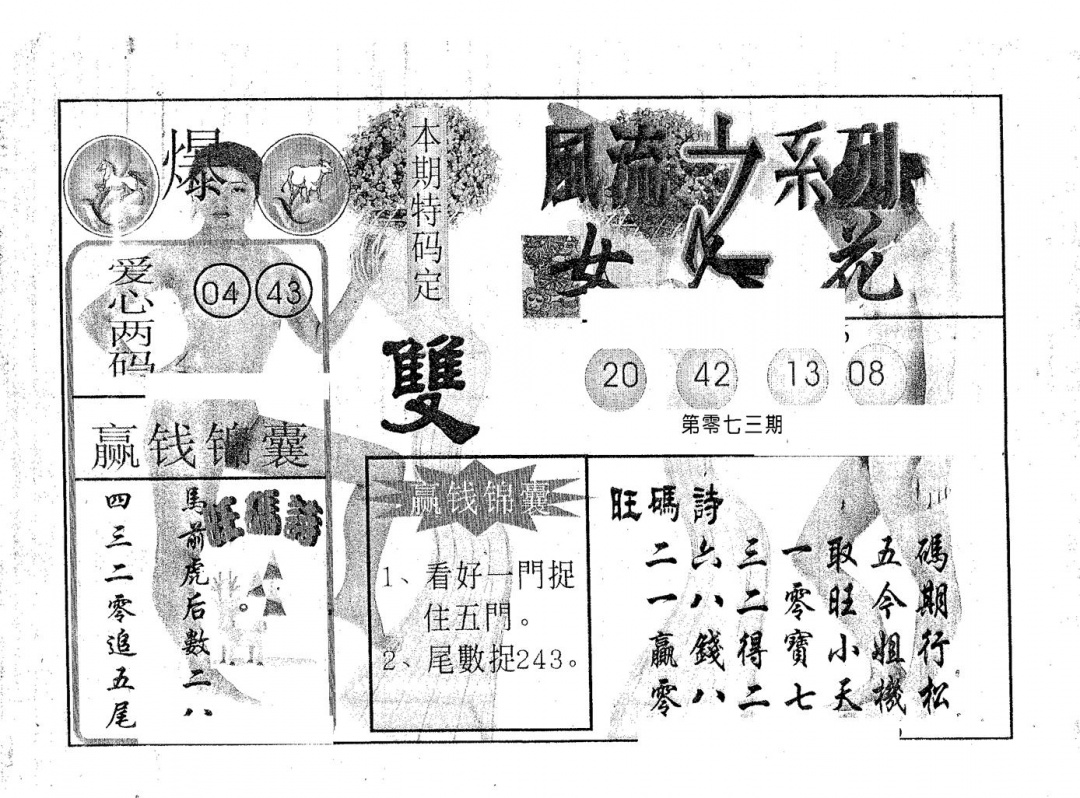 爆
爱心两码
04 43
本期特码定
雙
風流之系列
女人花
20 42 13 08
第零七三期
赢钱锦囊
旺碼詩
馬前虎后數二八
四三二零追五尾
赢钱锦囊
1、看好一門捉
住五門。
2、尾數捉243。
旺碼詩
二六三一取五碼
一八二零旺今期
贏錢得寶小姐行
零八二七天機松